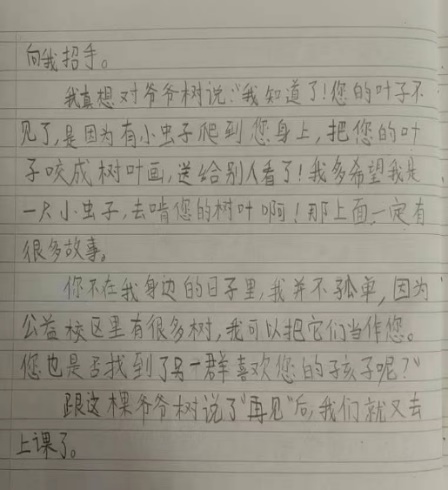 向我招手。
我真想对爷爷树说:“我知道了!您的叶子不
见了,是因为有小虫子爬到您身上,把您的叶
子咬成树叶画,送给别人看了!我多希望我是
一只小虫子,去啃您的树叶啊!那上面一定有
很多故事。
你不在我身边的日子里,我并不孤单,因为
公益校区里有很多树,我可以把它们当作您。
您也是否找到了另一群喜欢您的孩子呢?”
跟这棵爷爷树说了“再见”后,我们就又去
上课了。